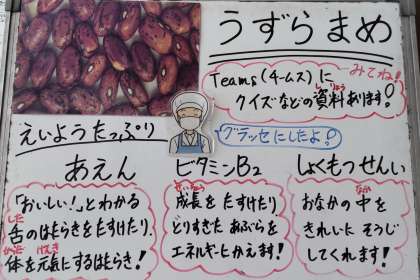 うずらまめ
みてね!
Teams(チームス)に
しりょう
クイズなどの資料あります!
えいようたっぷり
グラッセにしたよ!
あえん
「おいしい!」とわかる
した
舌のはたらきをたすけたり、
からだ げんき
体を元気にするはたらき!
ビタミンB2
せいちょう
成長をたすけたり
とりすぎたあぶらを
エネルギーにかえます!
しょくもつせんい
なか
おなかの中を
きれいにそうじ
してくれます!